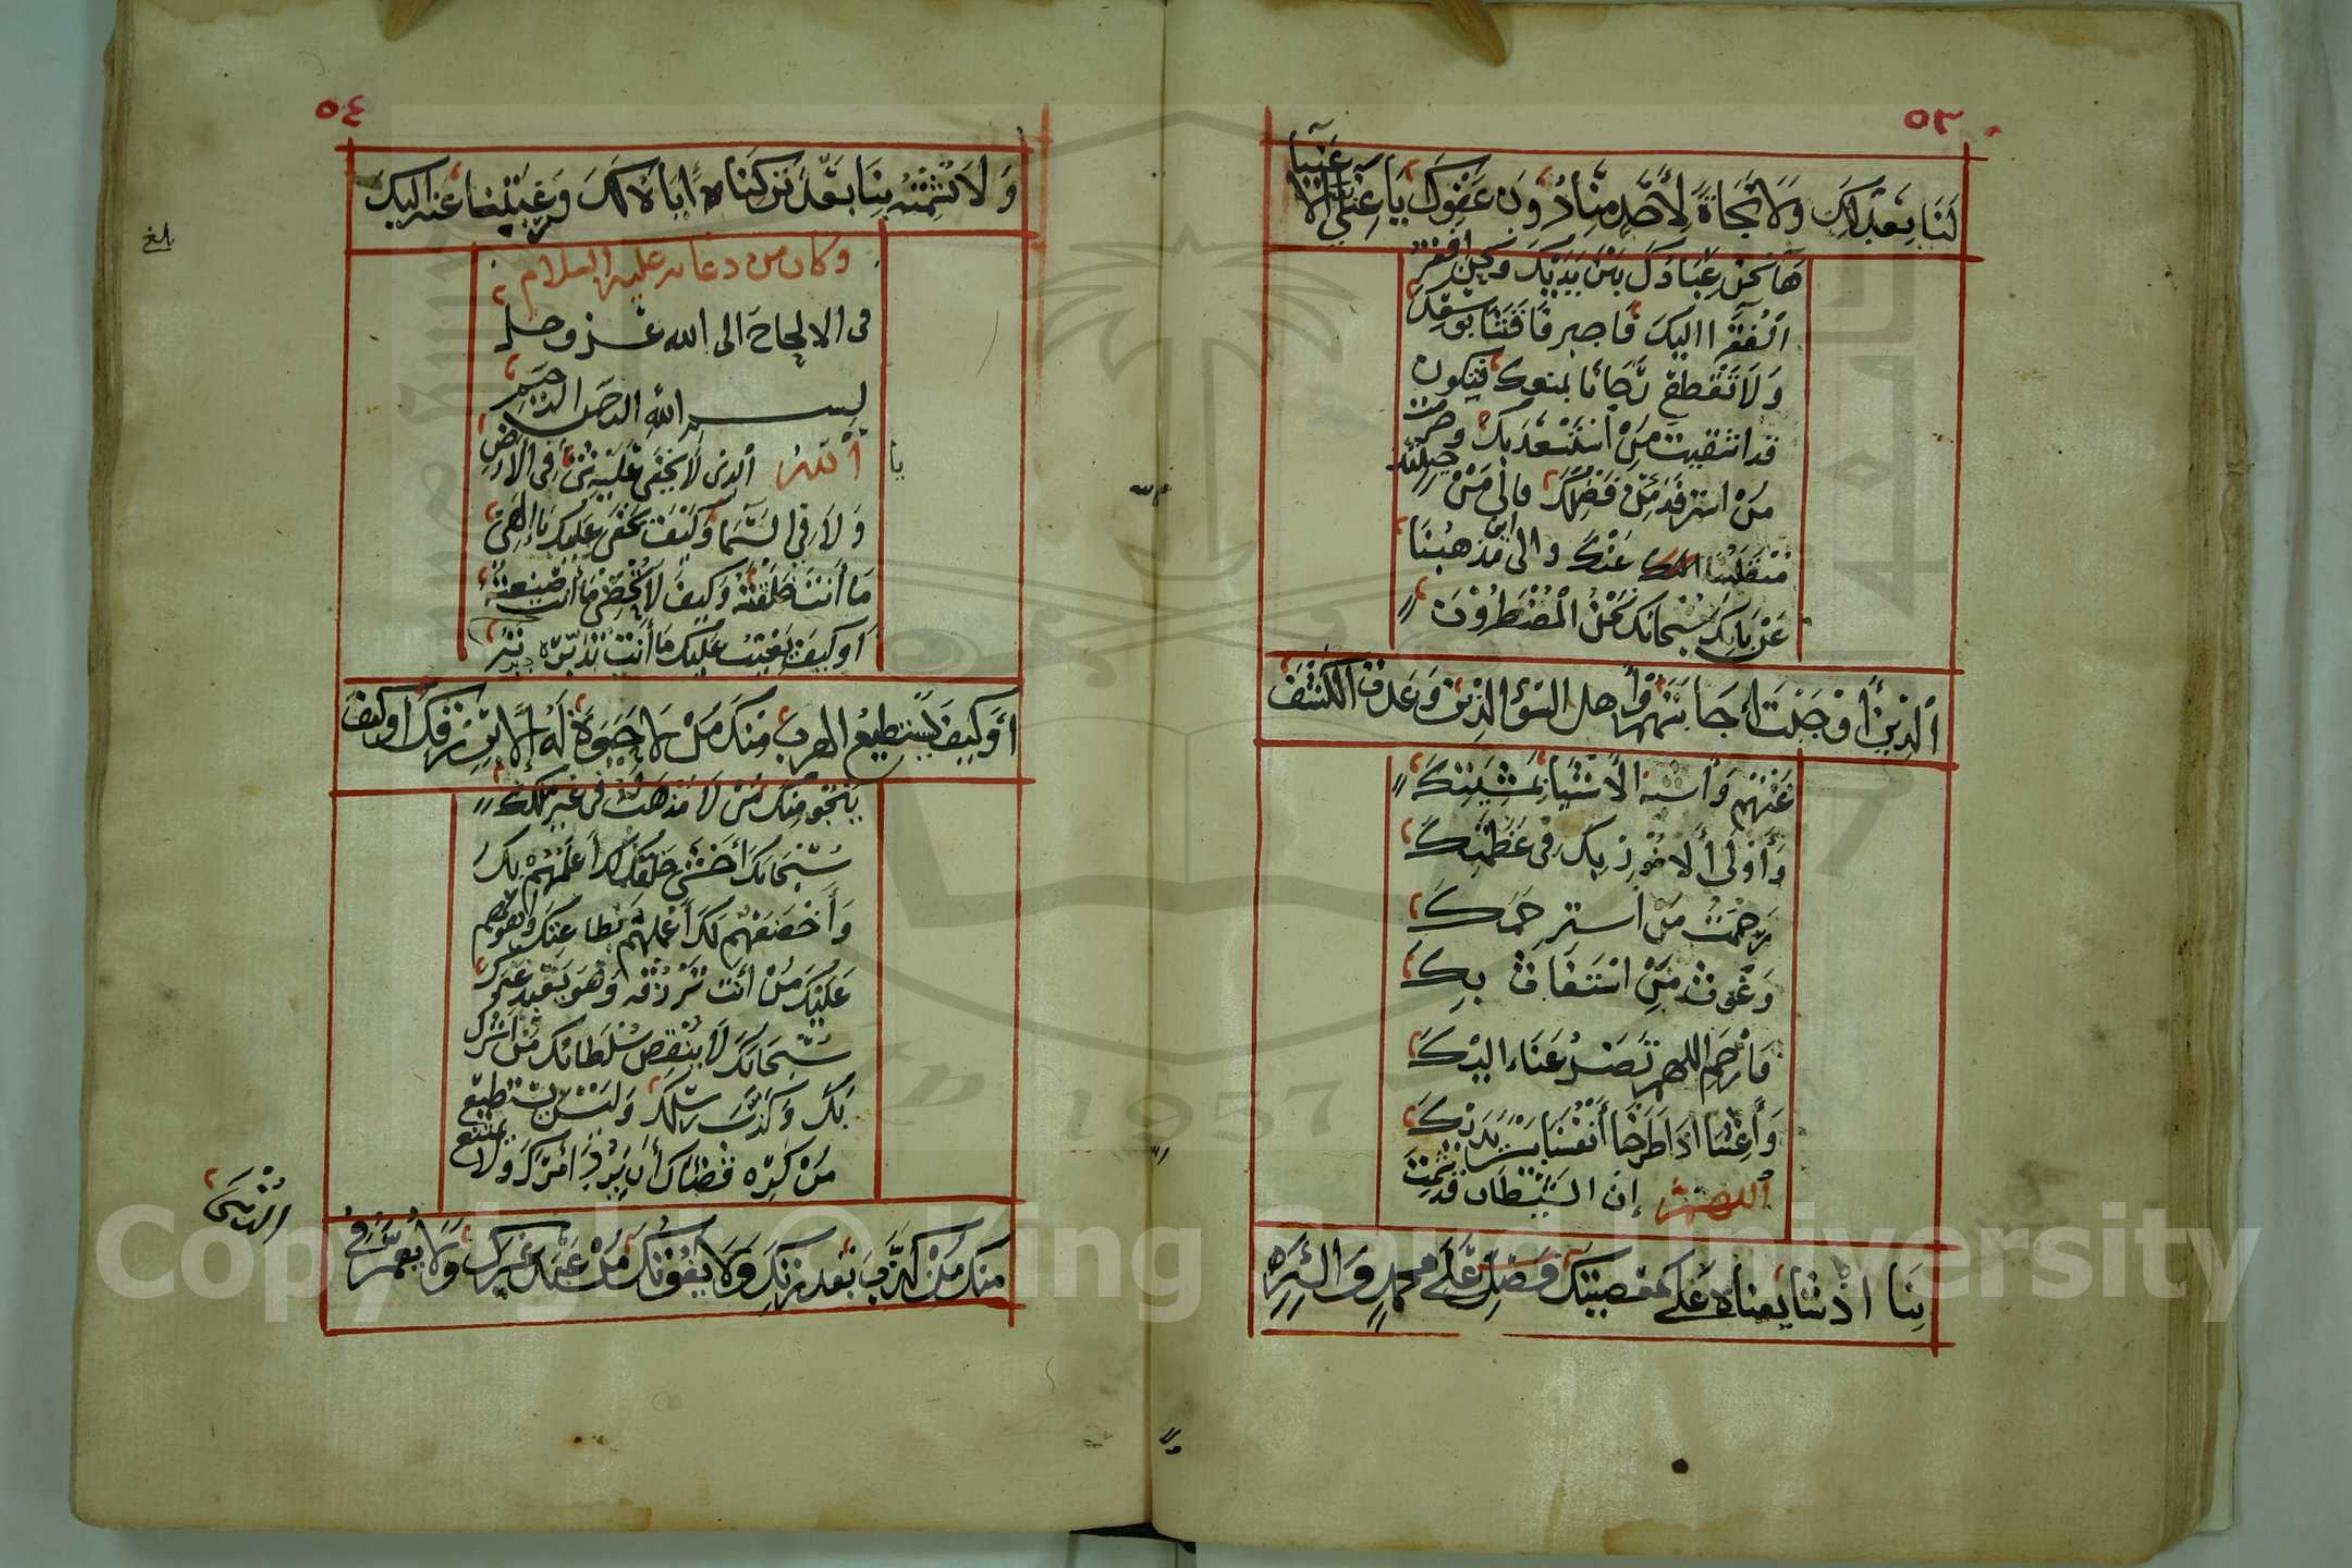 ٥٣
لَنَا بِعَدْلِكَ وَلَا نَجَاةَ لِأَحَدٍ مِنَّا دُوْنَ عَفْوِكَ يَا غَنِيَّ الأغنيا
هَا نَحْنُ عِبَادُكَ بَيْنَ يَدَيْكَ ونحن افقر
الفُقَرَا اليكَ فاجبر فَاقَتَنَا بوسعك
وَلَا تَقْطَع رَجَانَا بمنعك فتكون
قد اشقيت مَنْ اسْتَسْعَدَ بِكَ وحرمت
مَنْ استرفد فَضْلَكَ فالى مَنْ حينئذ
مُنْقَلَبُنَا عَنْكَ والى اين مَذهبُنَا
عَنْ بَابِكَ سُبْحَانَكَ نَحْنُ الْمُضْطَرُّوْنَ
الَّذِيْنَ أَوْجَبْتَ إِجَابَتَهُمْ وأهل السُّوْ الَّذِيْنَ وَعَدْتَ الكَشْفَ
عَنْهُم وَأَشبه الأَشْيَا بِمَشِيَّتِكَ
وَأَوْلَى الأُمُورِ بِكَ فِى عَظَمَتِكَ
رَحْمَتُ مَن استرحمكَ
وَغَوْث مَنِ اسْتَغَاثَ بِكَ
فَارْحَمِ اللهم تَضَرُّعَنَا اليْكَ
وَأَغْنِنَا اذ اطَرَحْنَا أَنْفُسَنَا بَيْنَ يَدَيْكَ
اللهم إنَّ الشَّيْطَان قَدْ شَمِتَ
بِنَا اذْ شَايَعناهُ عَلَى مَعْصِيَتِكَ فَصَلِّ عَلَى محمدٍ وَآلِهِ
٥٤
وَلَا تُشْمِتْهُ بِنَا بَعْدَ تَرْكِنَا إِيَّاهُ لَكَ وَرَغْبَتِنَا عَنه اليكَ
وكان من دعائه عليه السلام
فى الالحاح الى الله عز وجل
بسم الله الرحمن الرحيم
يا
اَللهُ الذى لَا يَخْفَى عَلَيْهِ شَىْءٌ فِى الأَرْضِ
وَلَا فِي السَّمَا وَكَيْفَ يَخْفَى عليك يَا إِلَهِى
مَا أَنْتَ خَلَقْتَهُ وَكَيفَ لَا تُحْصِى مَا أَنْتَ صَنَعْتَهُ
أَو كَيْفَ يَغِيْبُ عَلَيْكَ مَا أَنْتَ تُدَبِّرُه
أَوَ كَيفَ يَسْتَطِيعُ الهرب مِنْكَ مَنْ لَا حَيَوةَ لَهُ إِلَّا بِرِزْقِكَ أَو كَيْفَ
يَنْجُو مِنْكَ مَنْ لَا مَذهَبَ لَهُ فى غَيرِ ملكك
سُبْحَانَكَ أَخْشَى خَلْقِكَ لَكَ أَعْلَمُهُمْ بِكَ
وَأَخْضَعُهُم لَكَ أَعْمَلُهُم بِطَاعَتِكَ وأهونهم
عَلَيْكَ مَنْ أَنْتَ تَرْزُقُه وَهُوَ يَعْبُدُ غيرك
سُبْحَانَكَ لَا يَنْقُصُ سُلْطَانَكَ مَنْ أَشْرَكَ
بِكَ وَكَذَّبَ رسلك وَلَيْسَ يَسْتَطِيْعُ
مَنْ كَرِه قَضَاك أَن يَرُدَّ أَمْرَكَ وَلَا يمتنع
مِنْكَ مَنْ كَذَّبَ بقدرتِكَ وَلَا يَفُوْتُكَ مَنْ عَبَدَ غَيْرَكَ وَلَا يُعَمَّرُ فِى
الدُّنْيَا